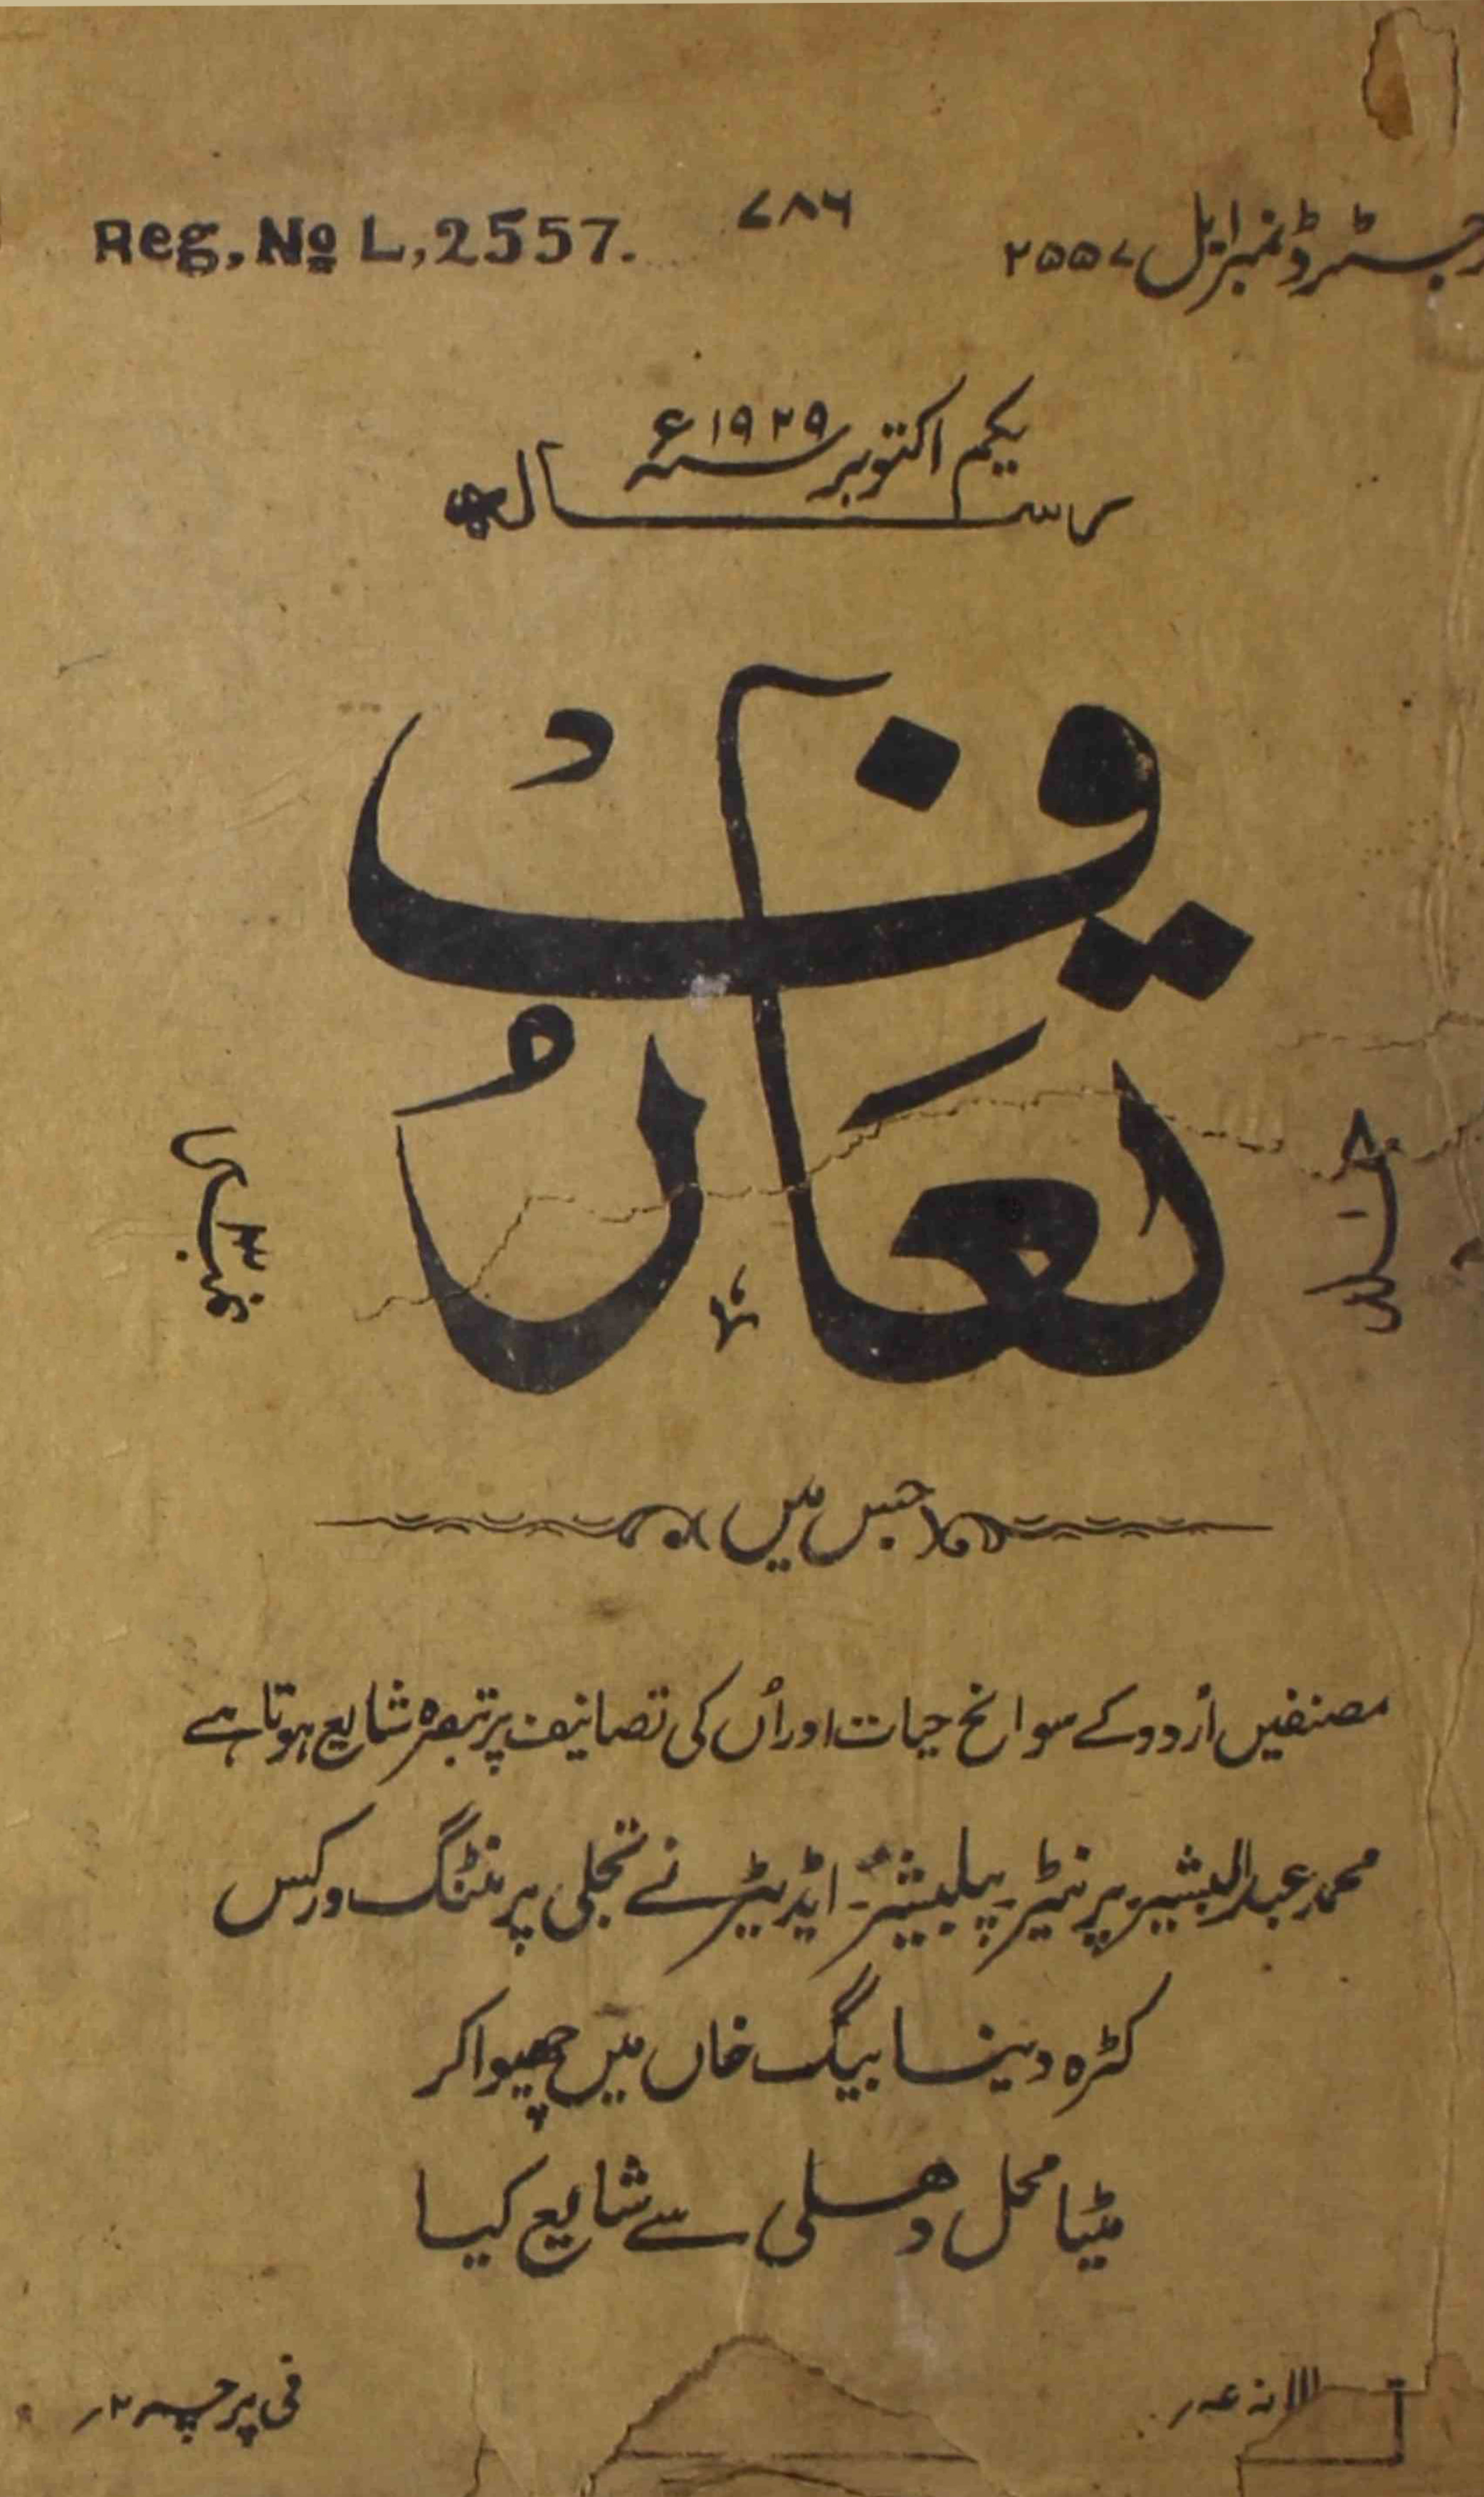 Reg, No L, 2557.
۷۸۶
رجسٹرڈ نمبر ایل ۲۵۵۷
یکم اکتوبر سنہ ۱۹۲۹ء
رسالہ
تعارف
جلد ۱
نمبر ۳
جس میں
مصنفین اُردو کے سوانح حیات اور اُن کی تصانیف پر تبصرہ شایع ہوتا ہے
محمد عبدالبشیر پرنٹر۔ پبلیشر۔ ایڈیٹر نے تجلی پرنٹنگ ورکس
کٹرہ دینا بیگ خاں میں چھپوا کر
مٹیا محل دھلی سے شایع کیا
فی پرچہ ۲ر